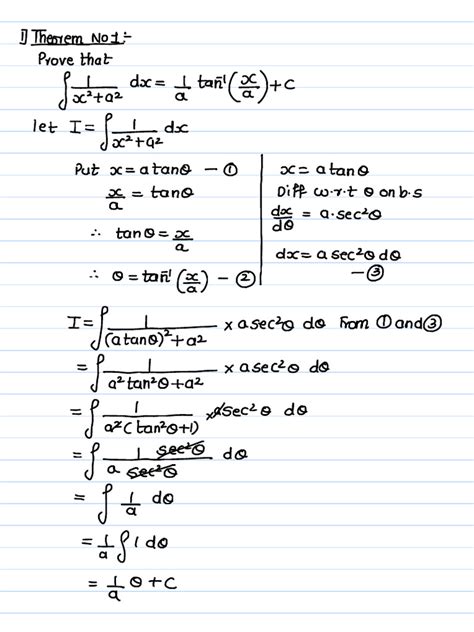 1) Theorem No1:-
Prove that
∫ 1/(x²+a²) dx = 1/a tan⁻¹(x/a)+c
let I = ∫ 1/(x²+a²) dx
Put x = a tanθ — ①
x/a = tanθ
∴ tanθ = x/a
∴ θ = tan⁻¹(x/a) — ②
x = a tanθ
Diff w.r.t θ on b.s
dx/dθ = a.sec²θ
dx = a sec²θ dθ
— ③
I = ∫ 1/((a tanθ)²+a²) × a sec²θ dθ from ① and ③
= ∫ 1/(a² tan²θ+a²) × a sec²θ dθ
= ∫ 1/(a²(tan²θ+1)) × a sec²θ dθ
= ∫ 1 sec²θ/(a sec²θ) dθ
= ∫ 1/a dθ
= 1/a ∫ 1 dθ
= 1/a θ + c